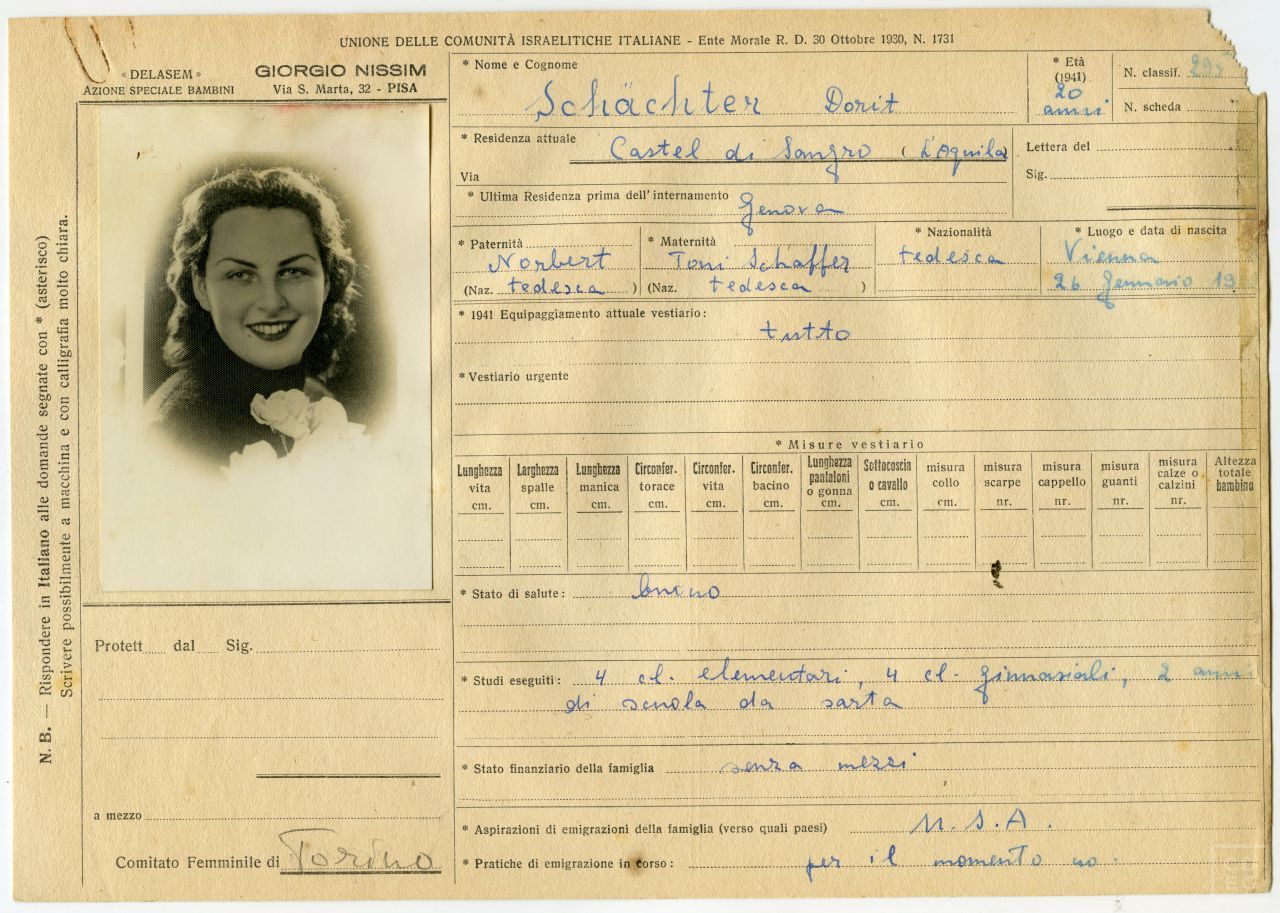 UNIONE DELLE COMUNITÀ ISRAELITICHE ITALIANE - Ente Morale R. D. 30 Ottobre 1930, N. 1731
« DELASEM »
AZIONE SPECIALE BAMBINI
GIORGIO NISSIM
Via S. Marta, 32 - PISA
N. B. — Rispondere in Italiano alle domande segnate con * (asterisco)
Scrivere possibilmente a macchina e con calligrafia molto chiara.
* Nome e Cognome
Schächter Dorit
* Età
(1941)
20
anni
N. classif.
N. scheda
* Residenza attuale
Castel di Sangro (L'Aquila)
Via
Lettera del
Sig.
* Ultima Residenza prima dell'internamento
Genova
* Paternità
Norbert
(Naz. tedesca )
* Maternità
Toni Schaffer
(Naz. tedesca )
* Nazionalità
tedesca
* Luogo e data di nascita
Vienna
26 Gennaio 19
* 1941 Equipaggiamento attuale vestiario:
tutto
* Vestiario urgente
* Misure vestiario
Lunghezza vita cm.
Larghezza spalle cm.
Lunghezza manica cm.
Circonfer. torace cm.
Circonfer. vita cm.
Circonfer. bacino cm.
Lunghezza pantaloni o gonna cm.
Sottocoscia o cavallo cm.
misura collo cm.
misura scarpe nr.
misura cappello nr.
misura guanti nr.
misura calze o calzini nr.
Altezza totale bambino
* Stato di salute: buono
* Studi eseguiti: 4 cl. elementari, 4 cl. ginnasiali, 2 anni
di scuola da sarta
* Stato finanziario della famiglia senza mezzi
* Aspirazioni di emigrazioni della famiglia (verso quali paesi) U.S.A.
* Pratiche di emigrazione in corso: per il momento no.
Protett dal Sig.
a mezzo
Comitato Femminile di Torino